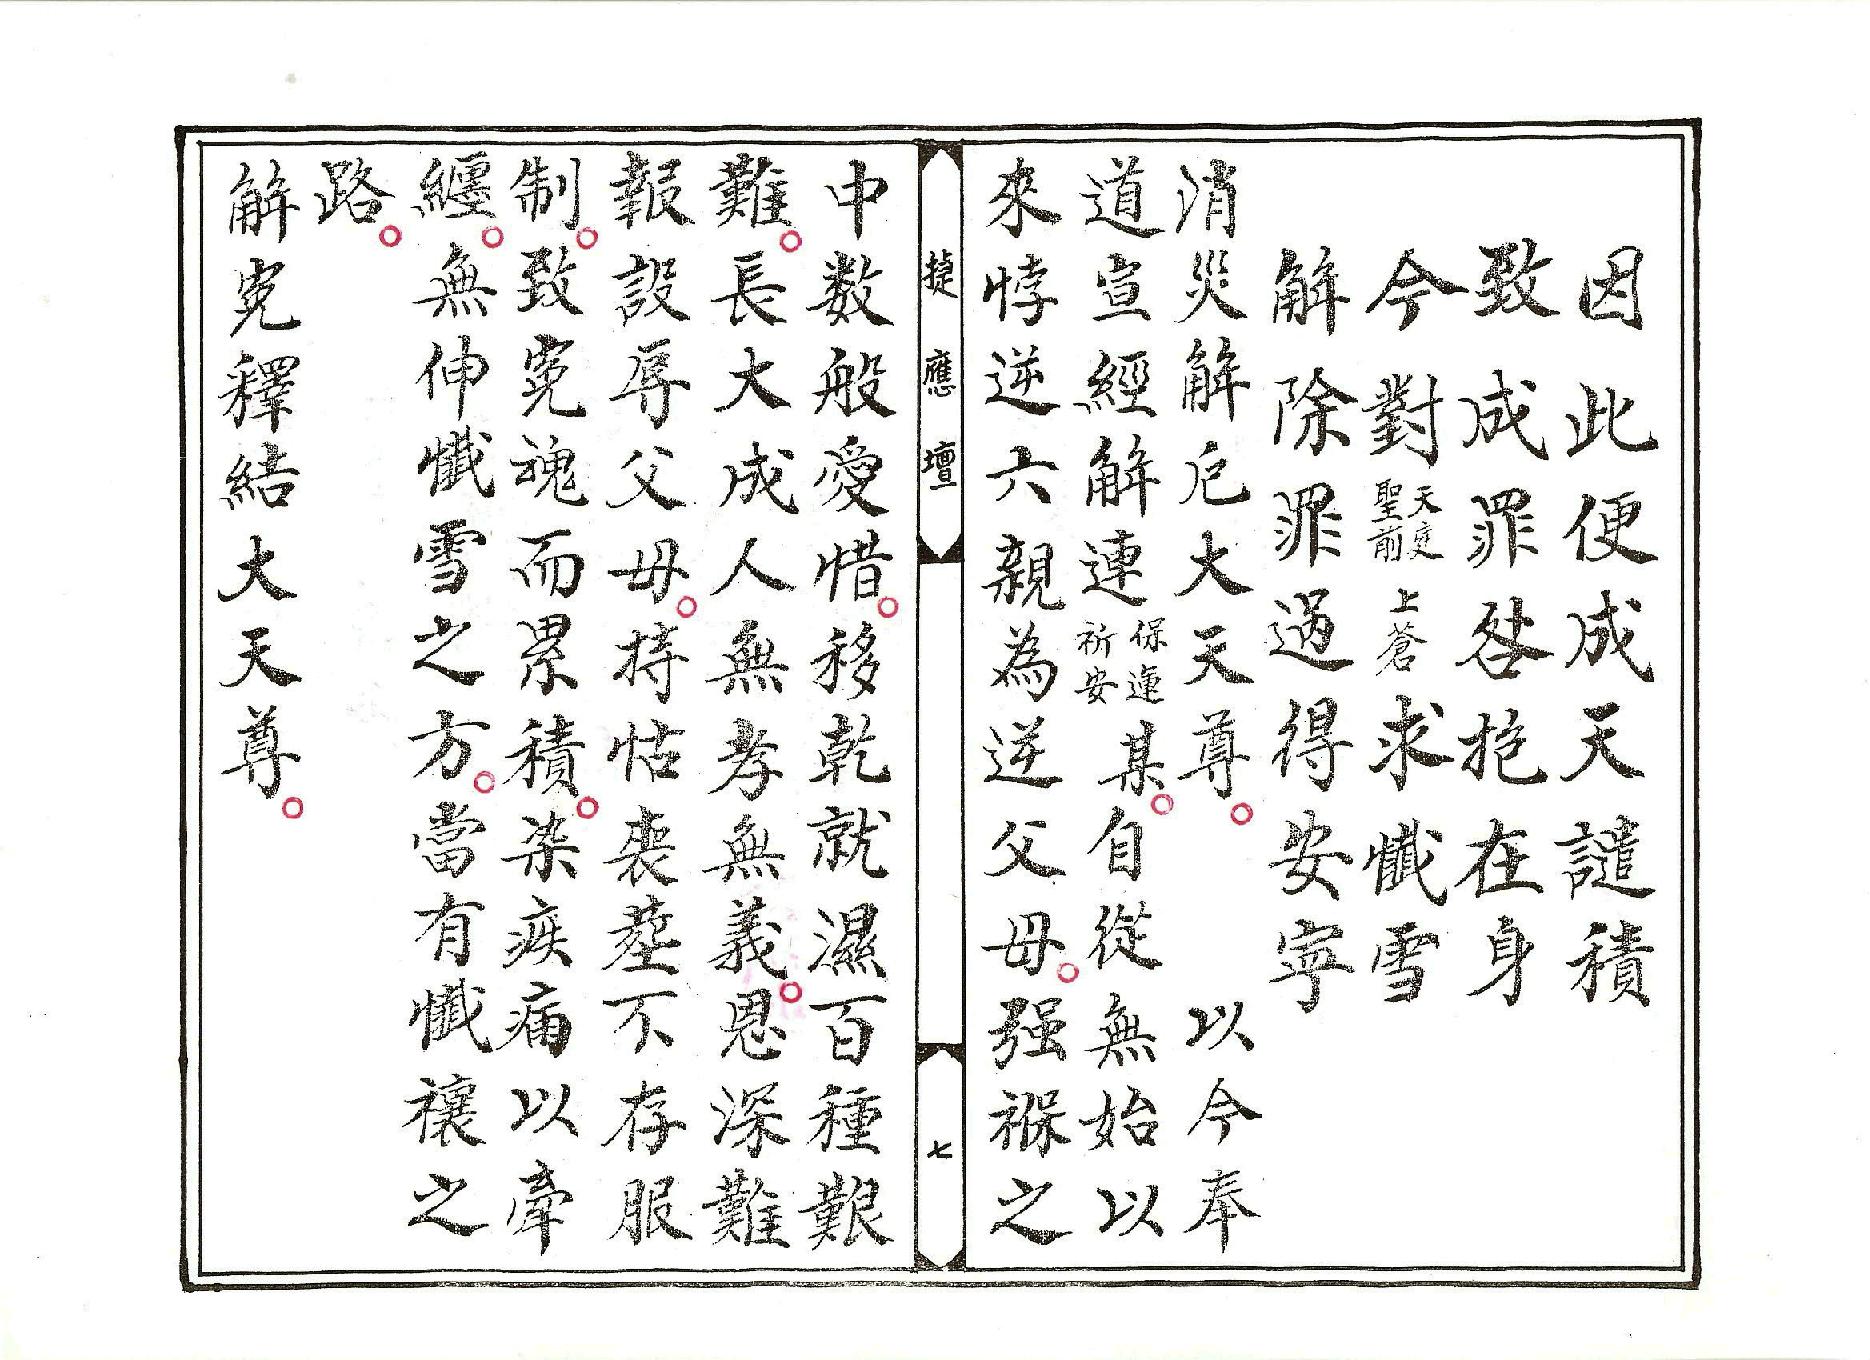 因此便成天譴積
致成罪咎抱在身
今對天庭聖前上蒼求懺雪
解除罪過得安寧
消災解厄大天尊。以今奉
道宣經解連保運祈安某。自從無始以
來悖逆六親為逆父母。强褓之
捷應壇 七
中数般愛惜。移乾就濕百種艱
難。長大成人無孝無義。恩深難
報設辱父母。持怙喪塟不存服
制。致寃魂而累積。染疾痛以牽
纏。無伸懺雪之方。當有懺禳之
路。
解寃釋結大天尊。